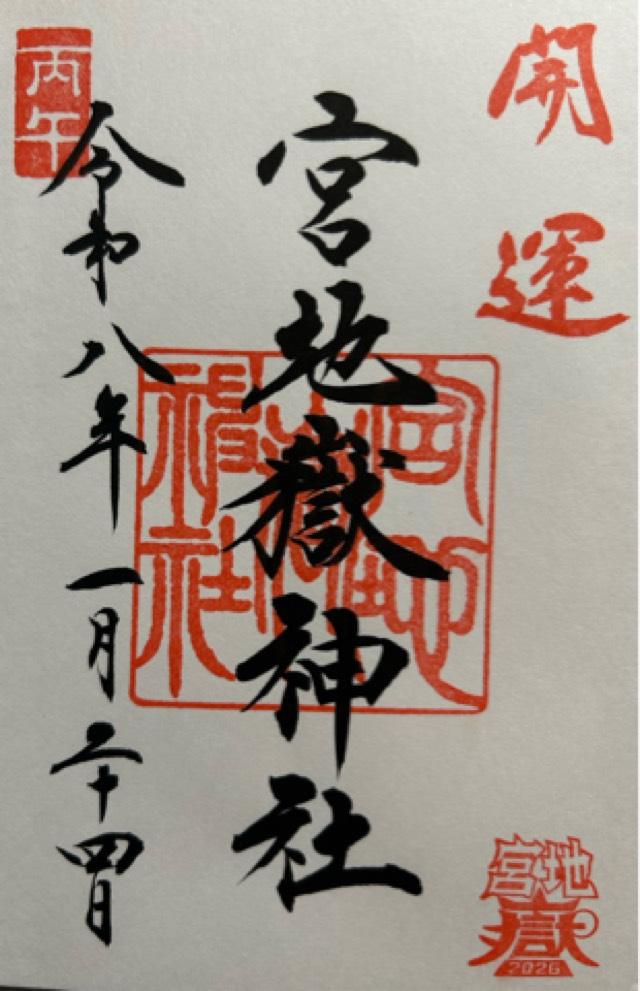 開運
宮地嶽神社
宮地嶽神社
令和八年一月二十四日
丙午
宮地
嶽
2026